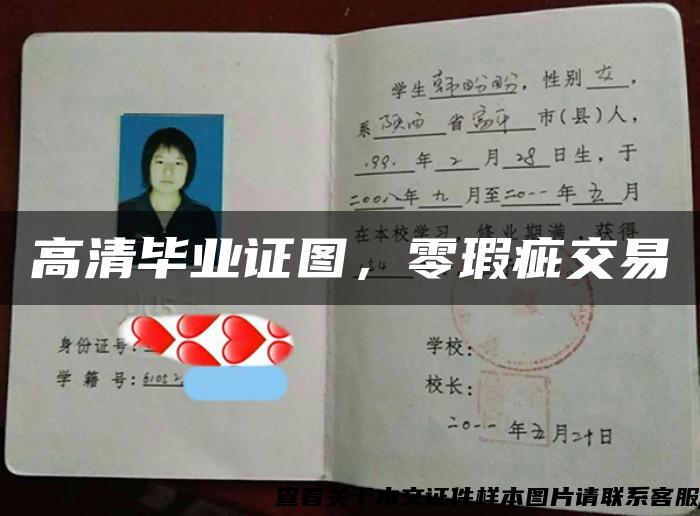 学生韩盼盼,性别女,
系陕西省富平市(县)人,
1991年2月28日生,于
二00八年九月至二0一一年五月
在本校学习,修业期满,获得
154
高清毕业证图,零瑕疵交易
身份证号:
学籍号:61052
学校:
校长:
二0一一年五月二十日
查看关于本文证件样本图片请联系客服